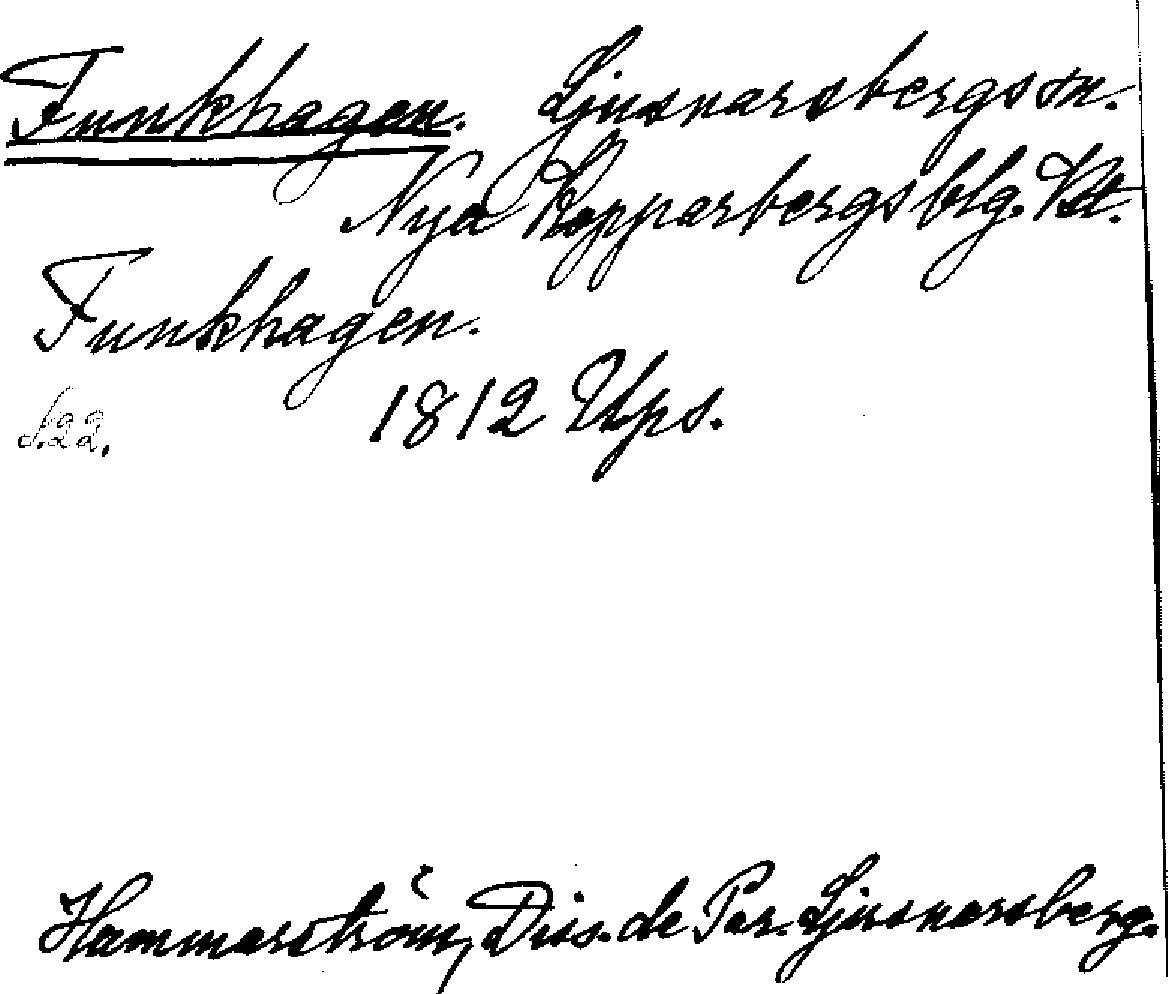 Funkhagen. Ljusnarsbergs sn.
Nya Kopparbergs blg. Vstl.
Funkhagen.
1812 Ups.
S. 22.
Hammarström, Diss. de Par. Ljusnarsberg.